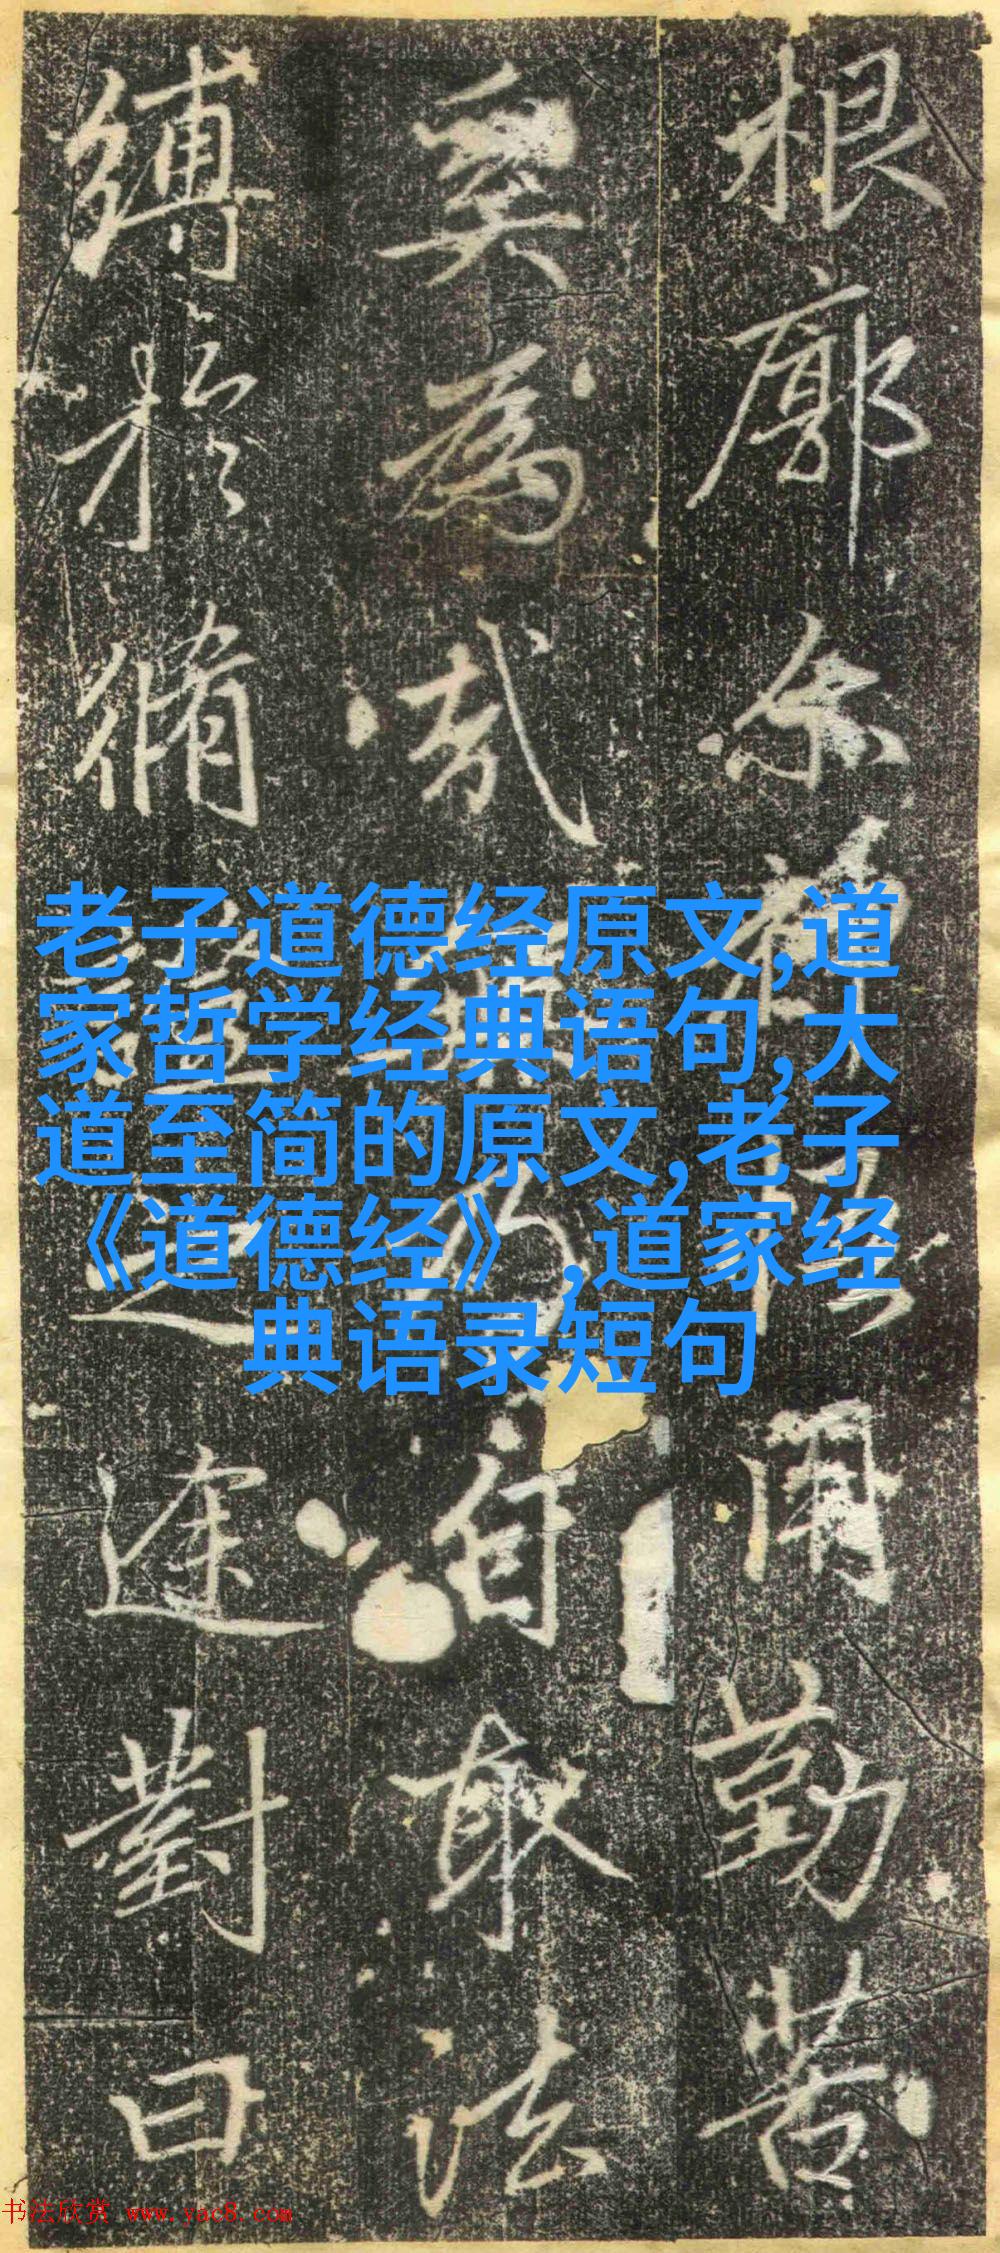 根廓用勤苦
奚為哉乃自取法
縛於脩之途對曰
老子道德经原文,道
家哲学经典语句,大
道至简的原文,老子
《道德经》,道家经
典语录短句
书法欣赏 www.yac8.com